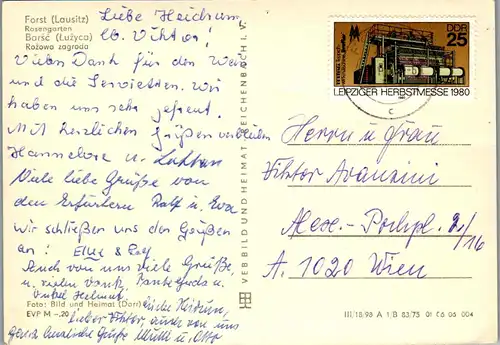 Forst (Lausitz)
Rosengarten
Barść (Łužyca)
Rožowa zagroda
Liebe Heidrun,
lb. Viktor!
Vielen Dank für den Wein
und die Servietten. Wir
haben uns sehr gefreut.
Mit herzlichen Grüßen verbleiben
Hannelore u.
Viele liebe Grüße von
den Erfurtern Ralf u. Eva
wir schließen uns den Grüßen
an! Elke & Rolf
Auch von uns viele Grüße,
u. vielen Dank, Tante Gerda u.
Onkel Helmut.
Foto: Bild und Heimat (Dorr)
EVP M -.20
Liebe Heidrun,
lieber Viktor, auch von uns
ganz herzliche Grüße Mutti u. Otto
VEB BILD UND HEIMAT REICHENBACH I. V.
DDR
25
LEIPZIGER HERBSTMESSE 1980
Herrn u. Frau
Viktor Avanzini
2/16
A. 1020 Wien
III/18/96 A 1/B 83/75 01 06 06 004